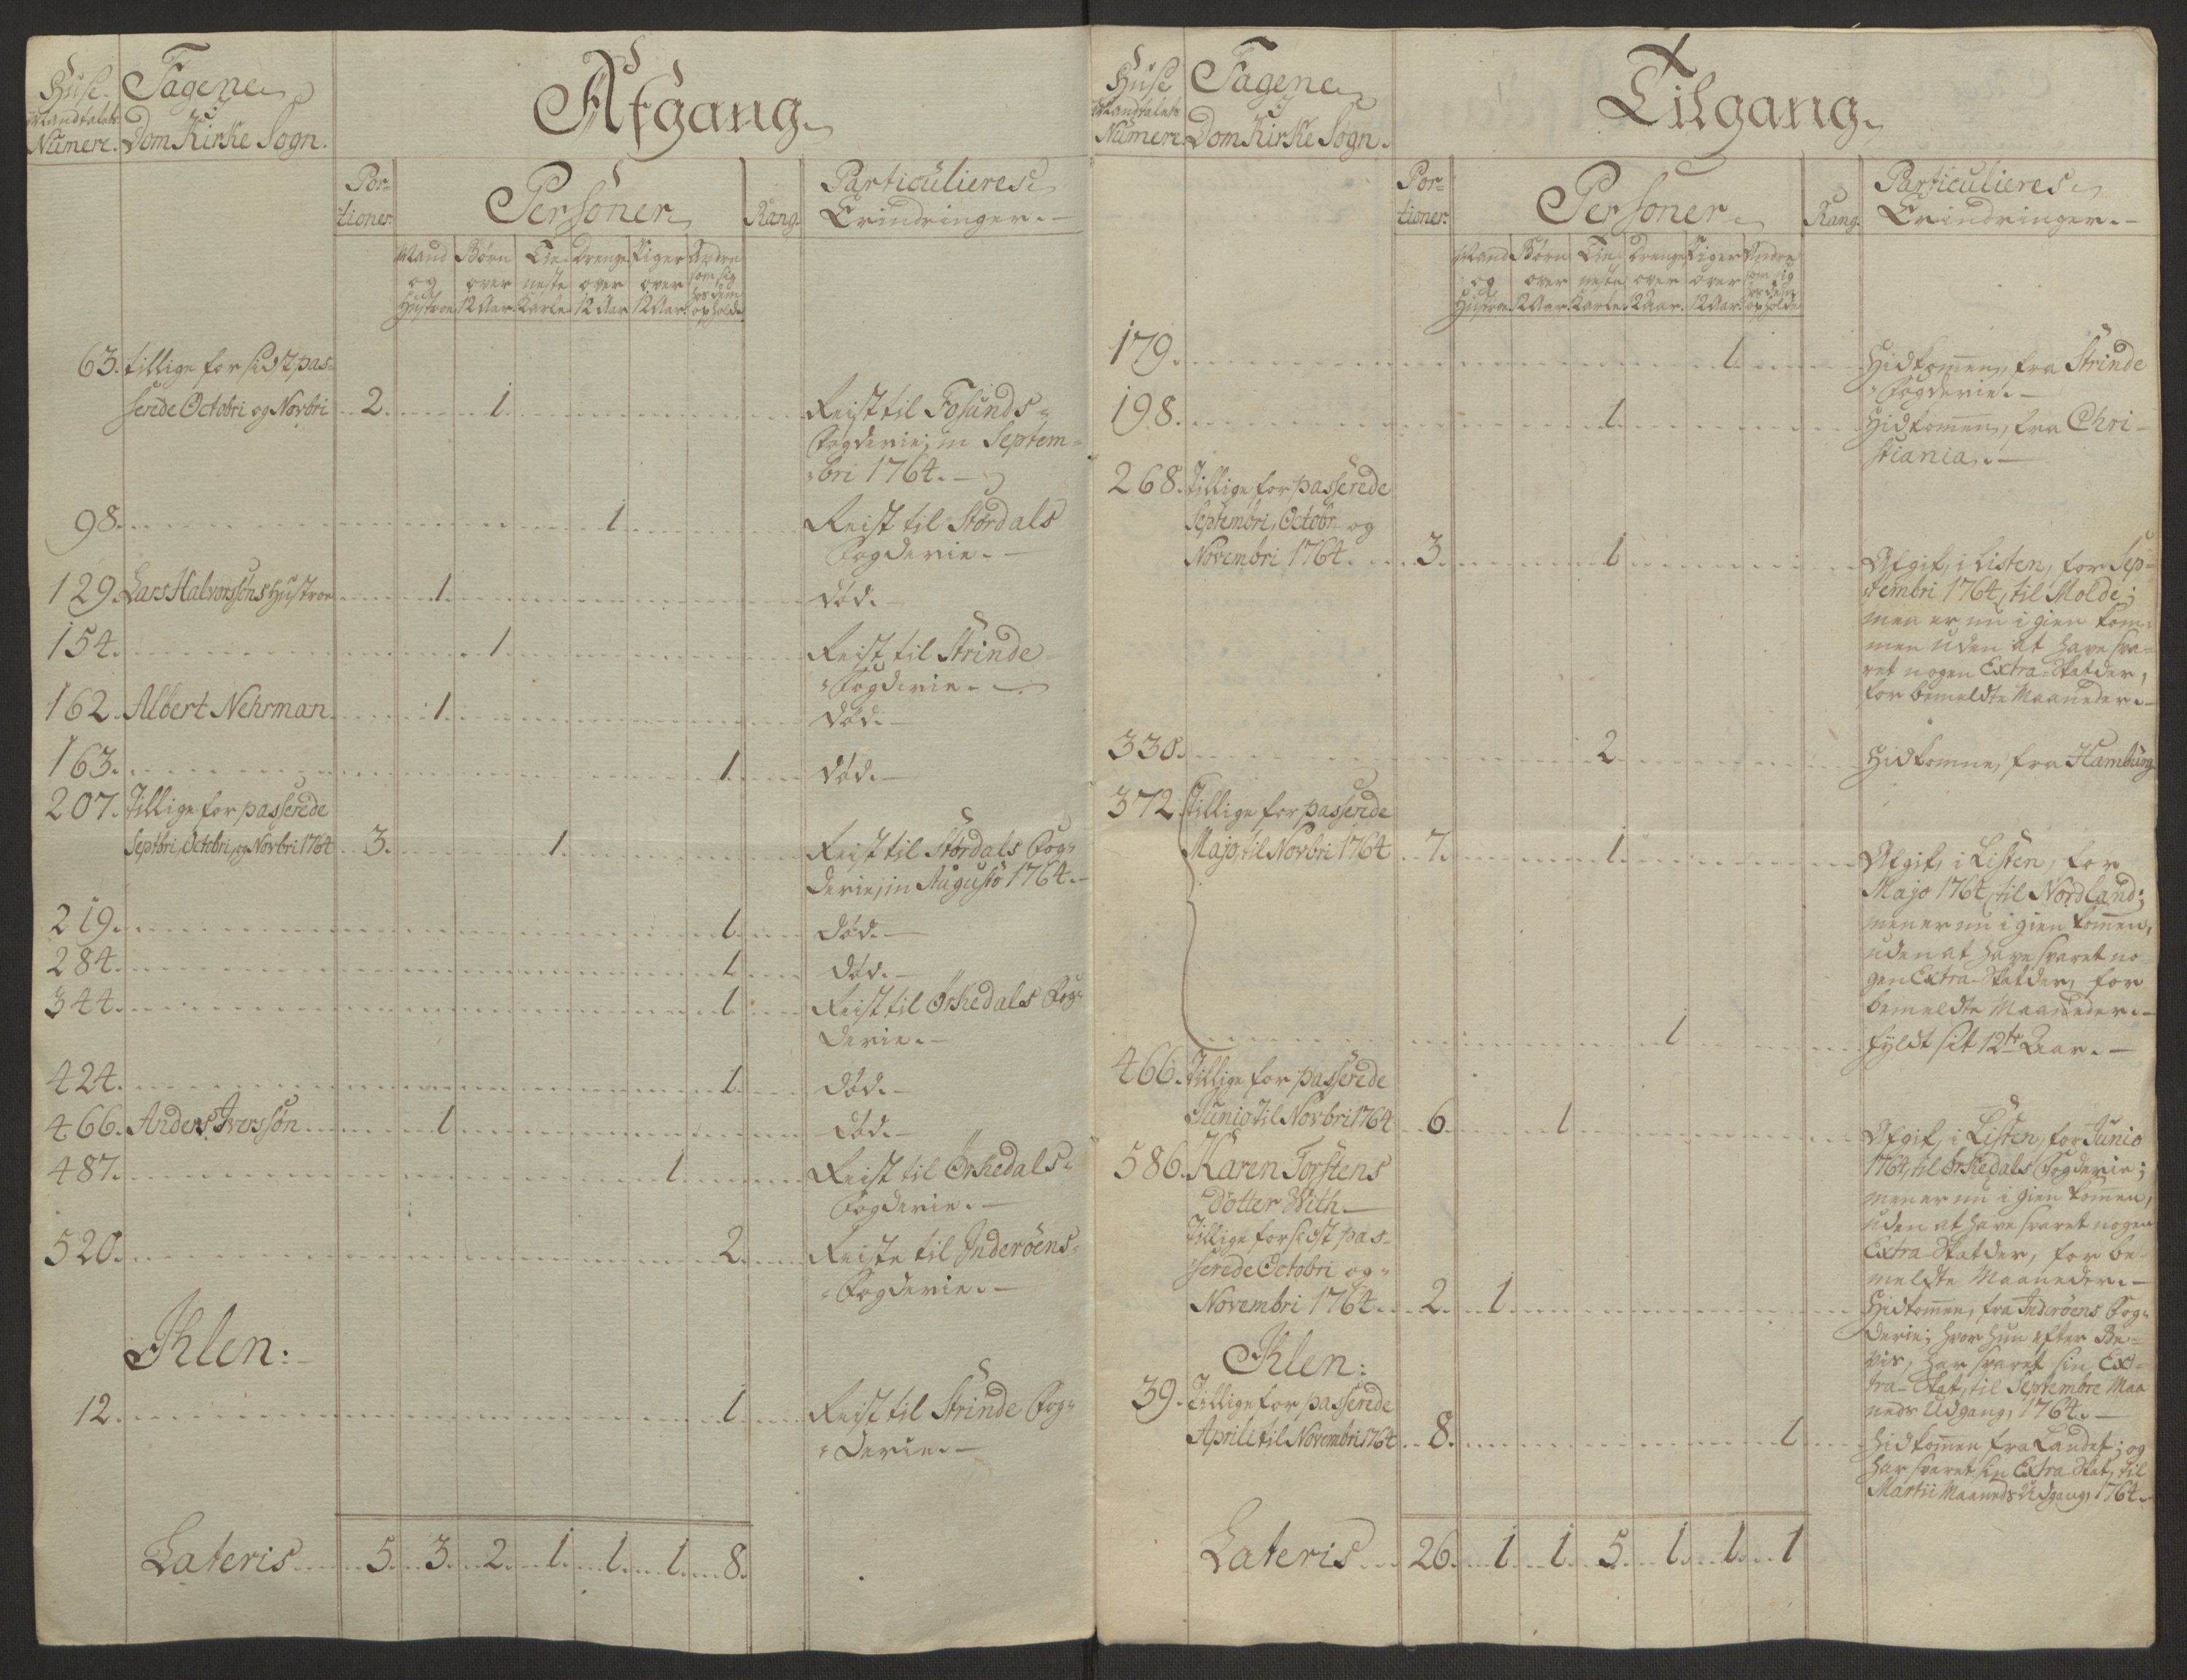 Huse Tagene
Mandtalets I
Numere. Dom Kirke Sogn.
Afgang.
Por-
tioner.
Personer
Rang.
Particulieres
Erindringer.
Mand Børn Tie- Drenge Piger Andre
og over neste over over som sig
Hustroe 12 Aar. Karle. 12 Aar 12 Aar. hos dem
opholde
63. tillige for sidst pas-
serede Octobri og Novbri 2. 1. Reist til Fosunds-
Fogderie; in Septem-
bri 1764.
98. 1. Reist til Stördals
Fogderie.
129. Lars Halvorssöns Hustroe 1. död.
154. 1. Reist til Strinde
Fogderie.
162. Albert Nehrman 1. död.
163. 1. död.
207. Tillige for passerede
Septbri, Octobri, og Novbri 1764 3. 1. Reist til Stördals Fog-
derie, in Augusto 1764.
219. 1. död.
284. 1. död.
344. 1. Reist til Örkedals Fog-
derie.
424. 1. död.
466. Anders Iversson 1. död.
487. 1. Reist til Örkedals-
Fogderie.
520. 2. Reiste til Inderöens-
Fogderie.
Ihlen:
12. 1. Reist til Strinde Fog-
derie.
Lateris 5. 3. 2. 1. 1. 1. 8.
Huse Tagene
Mandtalets I
Numere. Dom Kirke Sogn.
Tilgang.
Por-
tioner.
Personer
Rang.
Particulieres
Erindringer.
Mand Børn Tie- Drenge Piger Andre
og over neste over over som sig
Hustroe 12 Aar. Karle. 12 Aar. 12 Aar. hos dem
opholde
179. 1. Hidkommen, fra Strinde
Fogderie.
198. 1. Hidkommen, fra Chri-
stiania.
268. Tillige for passerede
Septembri, Octobri og
Novembri 1764. 3. 1. Afgik, i Listen, for Sep-
tembri 1764, til Molde;
men er nu igien kom-
men uden at have sva-
ret nogen Extra-Skatter,
for bemeldte Maaneder.
330. 2. Hidkomne, fra Hamburg
372. Tillige for passerede
Majo, til Novbri 1764 7. 1. Afgik, i Listen, for
Majo 1764, til Nordland;
men er nu igien kommen,
uden at have svaret no-
gen Extra-Skatter, for
bemeldte Maaneder.
1 fyldt sit 12te Aar.
466. Tillige for passerede
Junio til Novbri 1764 6. 1. Afgik, i Listen, for Junio
1764, til Örkedals Fogderie;
men er nu igien kommen,
uden at have svaret nogen
Extra-Skatter, for be-
meldte Maaneder.
586. Karen Torstens
dotter With
Tillige for sidst pas-
serede Octobri og
Novembri 1764. 2. 1. Hidkommen, fra Inderöens Fog-
derie; hvor hun efter Be-
vis, har svaret sin Ex-
tra-Skat, til Septembre Maa
neds Udgang, 1764.
Ihlen:
39. Tillige for passerede
Aprili til Novembri 1764 8. 1 Hidkommen fra Landet; og
har svaret sin Extra Skat, til
Martii Maaneds Udgang, 1764.
Lateris 26. 1. 1. 5. 1. 1. 1